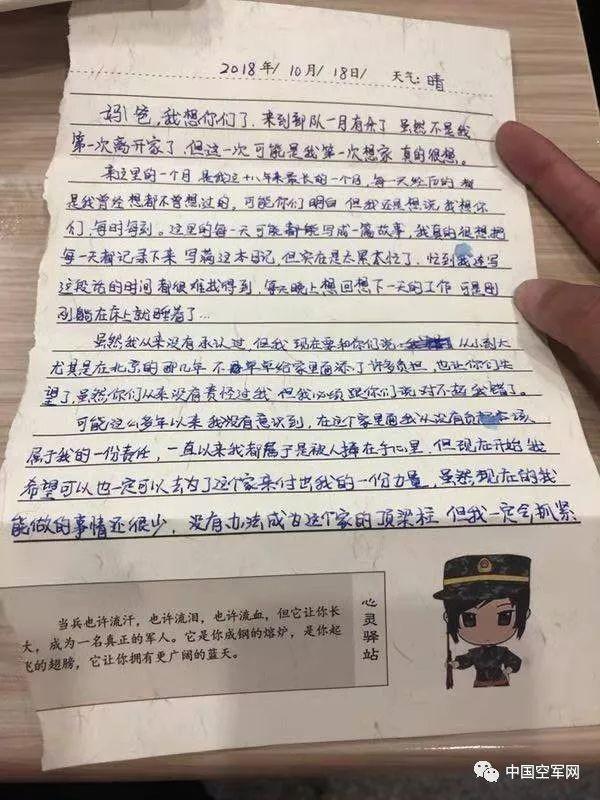 2018年/10月/18日/ 天气: 晴
妈!爸,我想你们了,来到部队一月有余了 虽然不是我
第一次离开家了,但这一次可能是我第一次想家 真的很想。
来这里的一个月 是我这十八年来最长的一个月,每一天经历的 都
是我曾经想都不曾想过的,可能你们明白 但我还是想说 我想你
们,每时每刻。这里的每一天可能都能写成一篇故事,我真的很想把
每一天都记录下来 写满这本日记,但实在是太累太忙了,忙到我连写
这段话的时间都很难找得到,每天晚上想回想下一天的工作 可是刚
刚躺在床上就睡着了…
虽然我从来没有承认过,但我 现在要和你们说 从小到大
尤其是在北京的那几年 给家里面添了许多负担,也让你们失
望了虽然你们从来没有责怪过我 但我必须跟你们说 对不起 我错了。
可能这么多年以来 我没有意识到,在这个家里面我从没有负起本该
属于我的一份责任,一直以来我都属于是被人捧在手心里,但现在开始 我
希望可以也一定可以去为了这个家来付出我的一份力量,虽然现在的我
能做的事情还很少,没有办法成为这个家的顶梁柱 但我一定会抓紧
当兵也许流汗,也许流泪,也许流血,但它让你长
大,成为一名真正的军人。它是你成钢的熔炉,是你起
飞的翅膀,它让你拥有更广阔的蓝天。
心灵驿站
中国空军网